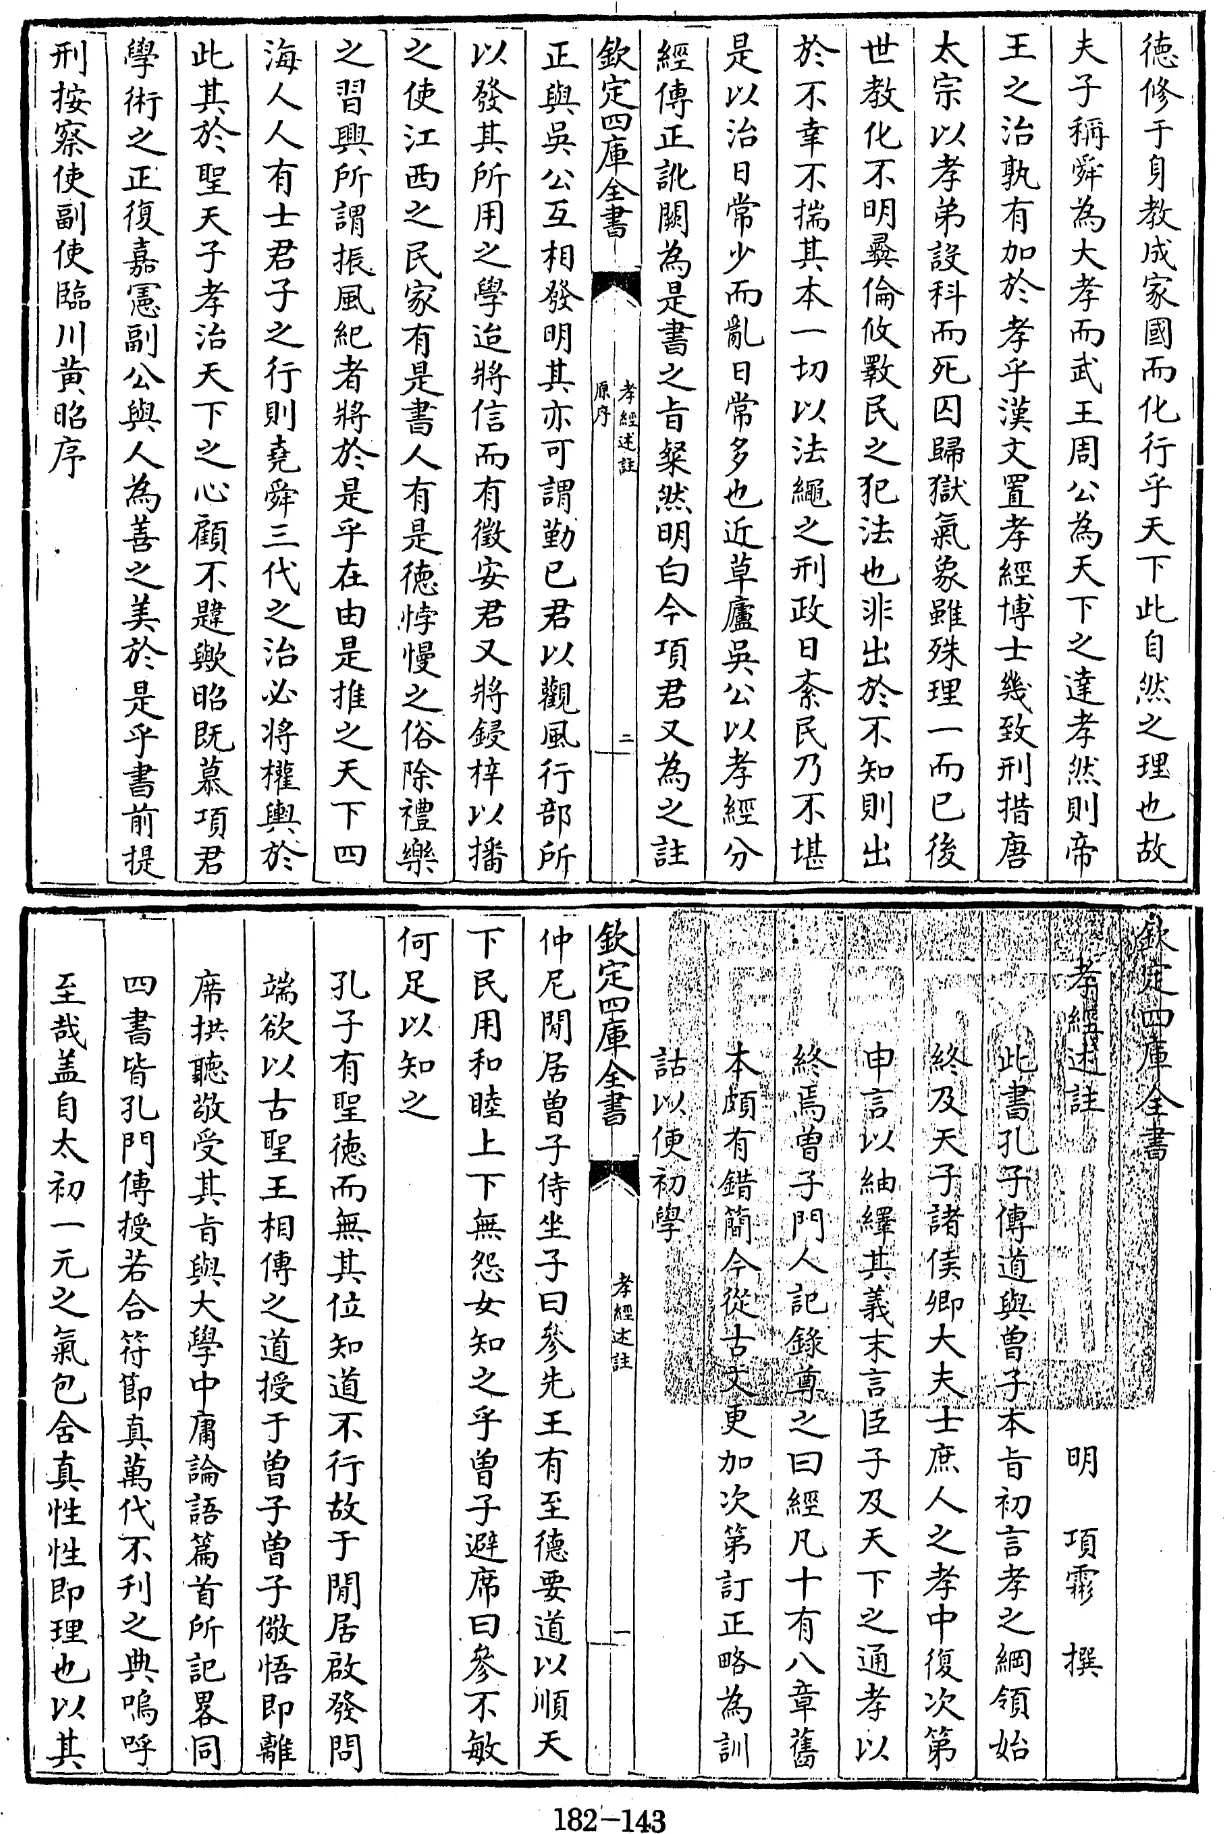 德修于身教成家國而化行乎天下此自然之理也故
夫子稱舜為大孝而武王周公為天下之達孝然則帝
王之治孰有加於孝乎漢文置孝經博士幾致刑措唐
太宗以孝弟設科而死囚歸獄氣象雖殊理一而已後
世教化不明彝倫攸斁民之犯法也非出於不知則出
於不幸不揣其本一切以法繩之刑政日紊民乃不堪
是以治日常少而亂日常多也近草廬吳公以孝經分
經傳正訛闕為是書之旨粲然明白今項君又為之註
欽定四庫全書
孝經述註
原序
二
正與吳公互相發明其亦可謂勤已君以觀風行部所
以發其所用之學迨將信而有徵安君又將鋟梓以播
之使江西之民家有是書人有是德悖慢之俗除禮樂
之習興所謂振風紀者將於是乎在由是推之天下四
海人人有士君子之行則堯舜三代之治必將權輿於
此其於聖天子孝治天下之心顧不韙歟昭既慕項君
學術之正復嘉憲副公與人為善之美於是乎書前提
刑按察使副使臨川黃昭序
欽定四庫全書
孝經述註
明 項霦 撰
此書孔子傳道與曾子本旨初言孝之綱領始
終及天子諸侯卿大夫士庶人之孝中復次第
申言以紬繹其義末言臣子及天下之通孝以
終焉曾子門人記錄尊之曰經凡十有八章舊
本頗有錯簡今從古文更加次第訂正略為訓
詁以便初學
欽定四庫全書
孝經述註
一
仲尼閒居曾子侍坐子曰參先王有至德要道以順天
下民用和睦上下無怨女知之乎曾子避席曰參不敏
何足以知之
孔子有聖德而無其位知道不行故于閒居啟發問
端欲以古聖王相傳之道授于曾子曾子儆悟即離
席拱聽敬受其旨與大學中庸論語篇首所記畧同
四書皆孔門傳授若合符節真萬代不刊之典嗚呼
至哉盖自太初一元之氣包含真性性即理也以其
182-143